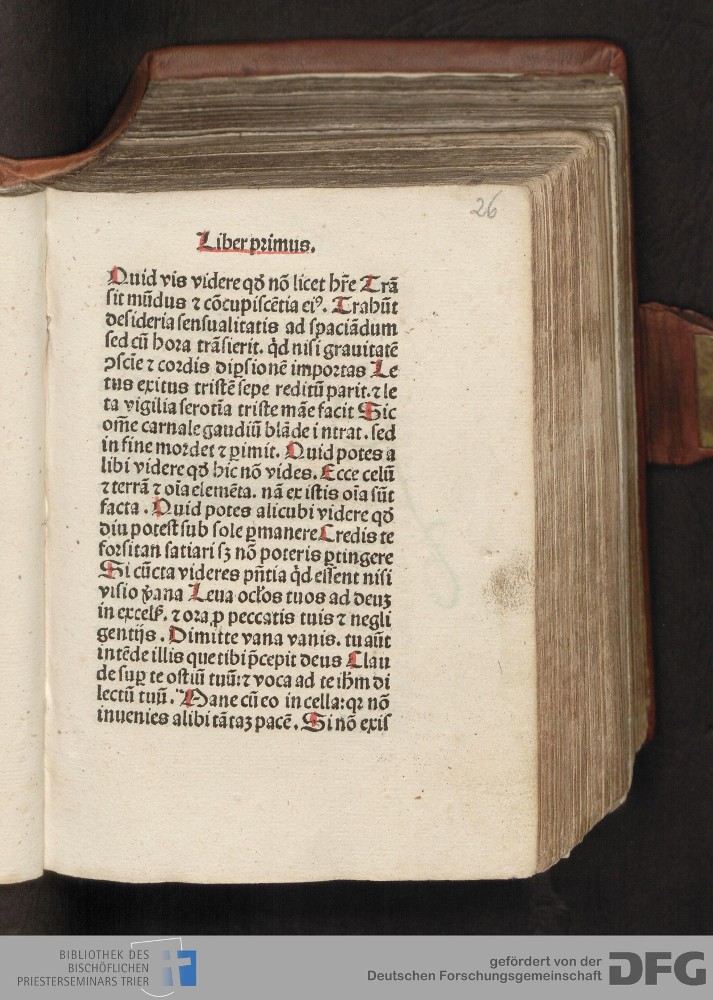 26
Liber primus.
Quid vis videre qđ nō licet hr̄e Trā
sit mūdus ⁊ cōcupiscētia eiꝰ. Trahūt
desideria sensualitatis ad spaciādum
sed cū hora trāsierit. qd̄ nisi grauitatē
ꝯscīe ⁊ cordis dipsionē importas Le
tus exitus tristē sepe reditū parit. ⁊ le
ta vigilia serotīa triste māe facit Sic
om̄e carnale gaudiū blāde intrat. sed
in fine mordet ⁊ ꝑimit. Quid potes a
libi videre qđ hic nō vides. Ecce celū
⁊ terrā ⁊ oīa elemēta. nā ex istis oīa sūt
facta. Quid potes alicubi videre qđ
diu potest sub sole ꝑmanere Credis te
forsitan satiari sꝫ nō poteris ꝑtingere
Si cūcta videres pn̄tia qd̄ essent nisi
visio v̄ana Leua ocl̓os tuos ad deuꝫ
in excels̓. ⁊ ora ꝓ peccatis tuis ⁊ negli
gentijs. Dimitte vana vanis. tu aūt
intēde illis que tibi p̄cepit deus Clau
de suꝑ te ostiū tuū: ⁊ voca ad te ih̄m di
lectū tuū. Mane cū eo in cella: qꝛ nō
inuenies alibi tātaꝫ pacē. Si nō exis
BIBLIOTHEK DES
BISCHÖFLICHEN
PRIESTERSEMINARS TRIER
gefördert von der
Deutschen Forschungsgemeinschaft
DFG